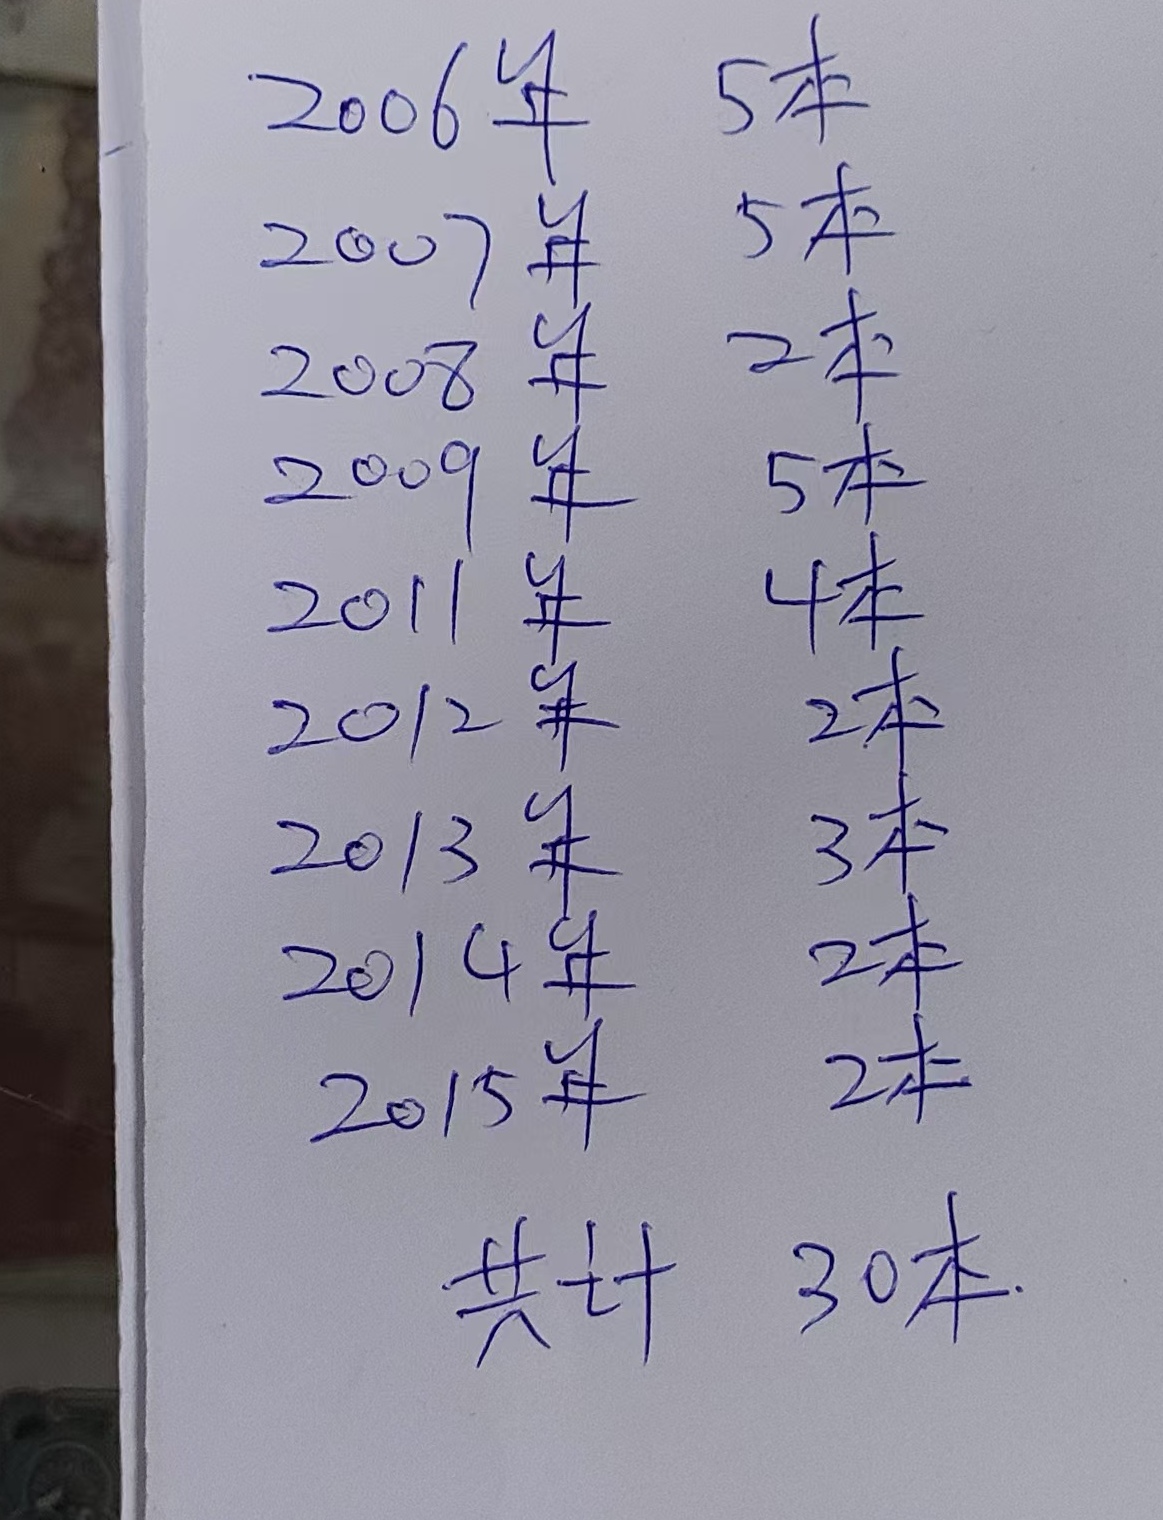 2006年 5本
2007年 5本
2008年 2本
2009年 5本
2011年 4本
2012年 2本
2013年 3本
2014年 2本
2015年 2本
共计 30本.